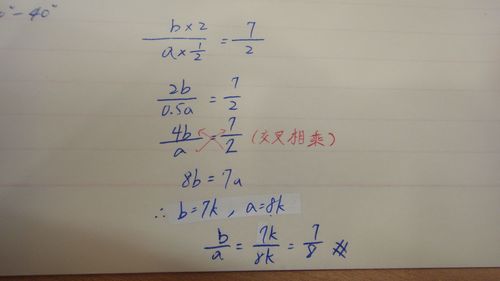 ° - 40°
b×2 / a×1/2 = 7/2
2b / 0.5a = 7/2
4b / a = 7/2 (交叉相乘)
8b = 7a
∴ b=7k , a=8k
b/a = 7k/8k = 7/8 #